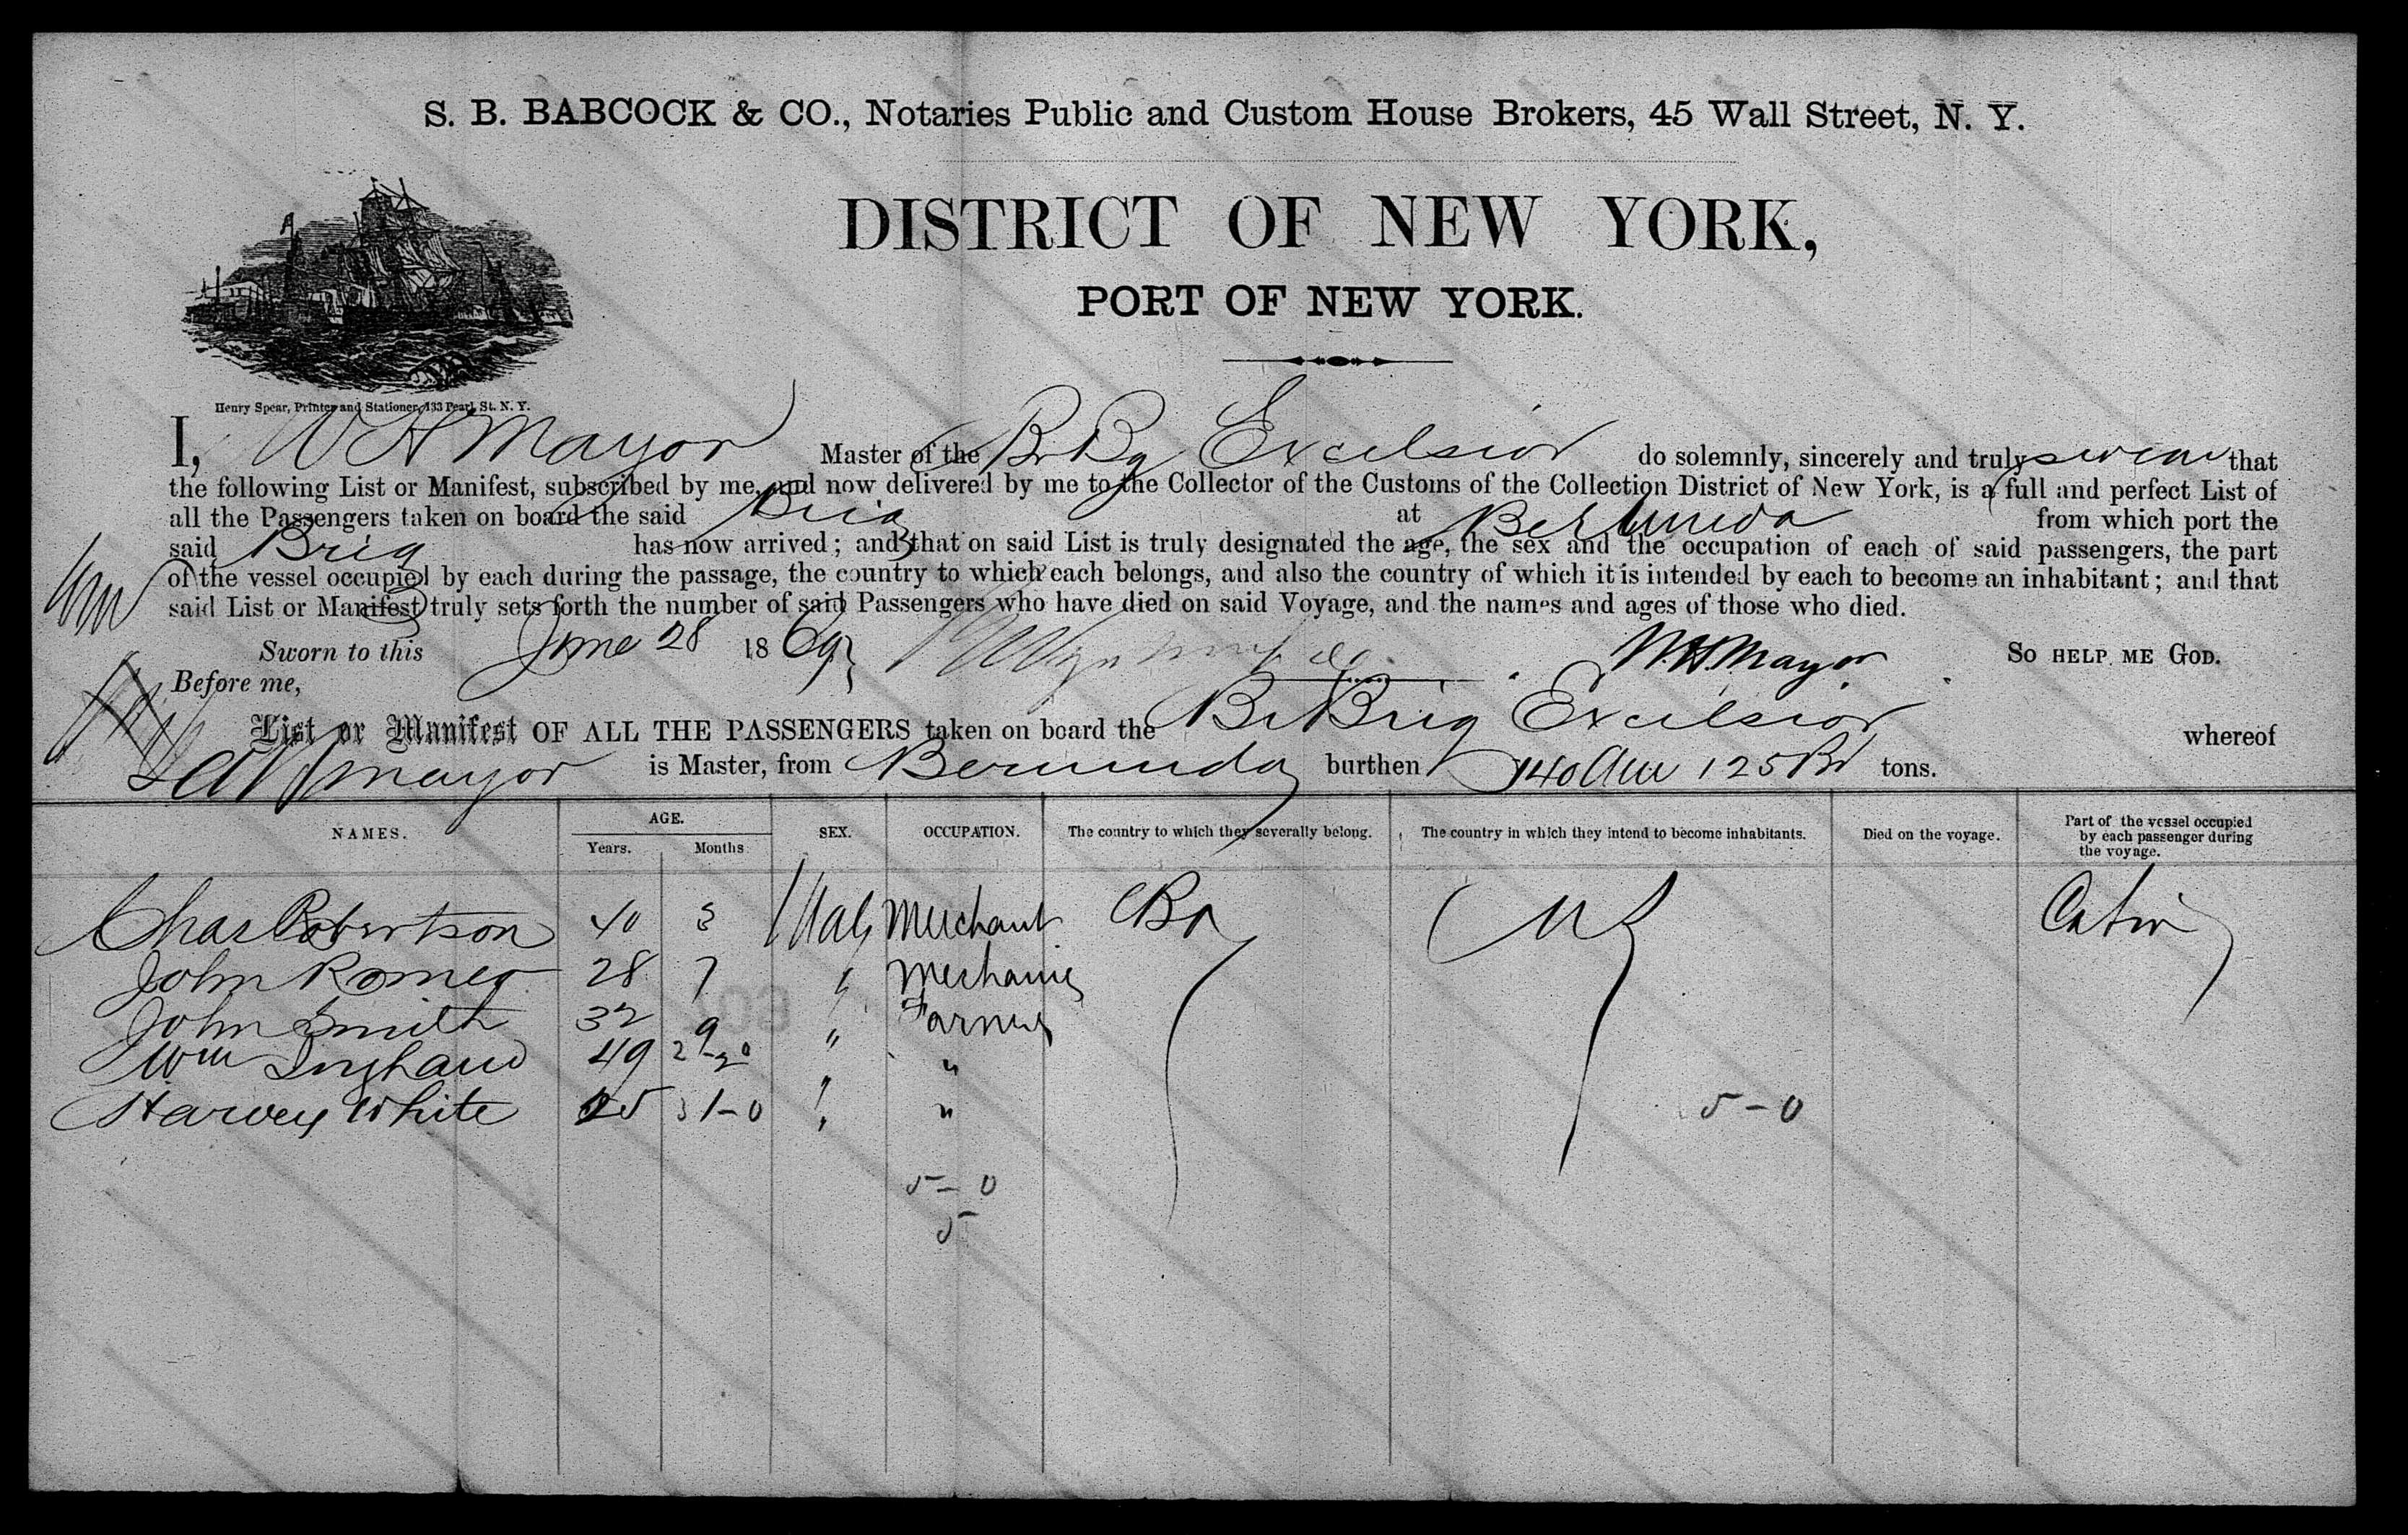 S. B. BABCOCK & CO., Notaries Public and Custom House Brokers, 45 Wall Street, N. Y.
DISTRICT OF NEW YORK,
PORT OF NEW YORK.
Henry Spear, Printer and Stationer, 133 Pearl St. N. Y.
I, W H Mayor Master of the Br Bg Excelsior do solemnly, sincerely and truly swear that
the following List or Manifest, subscribed by me, and now delivered by me to the Collector of the Customs of the Collection District of New York, is a full and perfect List of
all the Passengers taken on board the said Brig at Bermuda from which port the
said Brig has now arrived; and that on said List is truly designated the age, the sex and the occupation of each of said passengers, the part
of the vessel occupied by each during the passage, the country to which each belongs, and also the country of which it is intended by each to become an inhabitant; and that
said List or Manifest truly sets forth the number of said Passengers who have died on said Voyage, and the names and ages of those who died.
Sworn to this June 28 1869 W. H. Mayor So HELP ME GOD.
Before me,
List or Manifest OF ALL THE PASSENGERS taken on board the Br Brig Excelsior whereof
Mayor is Master, from Bermuda burthen 140 125 Br tons.
NAMES. AGE. Years. Months SEX. OCCUPATION. The country to which they severally belong. The country in which they intend to become inhabitants. Died on the voyage. Part of the vessel occupied by each passenger during the voyage.
Chas Robertson 40 3 Male Merchant Br Cabin
John Romeo 28 7 " Mechanic
John Smith 32 9 " Farmer
Wm Ingham 49 2 " "
Harvey White 1-0 " " 5-0
5-0
5